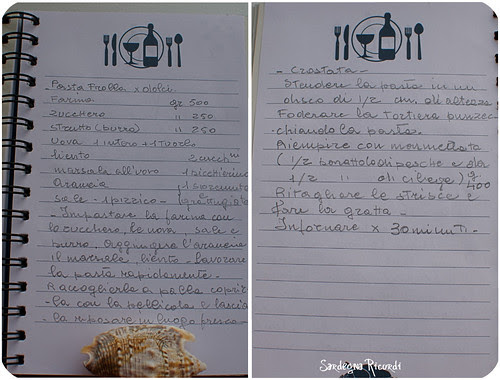 Pasta Frolla x dolci
Farina gr 500
Zucchero " 250
Strutto (burro) " 250
Uova 1 intero + 1 tuorlo
lievito 2 cucch
marsala all'uovo 1 bicchierino
Arancia 1 spremuta
sale - 1 pizzico - 1 grattugiata
- Impastare la farina con
lo zucchero, le uova, sale e
burro. Aggiungere l'arancia
il marsala, lievito - lavorare
la pasta rapidamente.
Raccoglierla a palla coprir
la con la pellicola e lascia
la riposare in luogo fresco -
- Crostata -
Stendere la pasta in un
disco di 1/2 cm. di altezza
Foderare la tortiera punzec
chiando la pasta.
Riempire con marmellata
( 1/2 barattolo di pesche e da
1/2 " di ciliege ) g. 400
Ritagliare le strisce e
fare la gratta -
Infornare x 30 minuti -
Sardegna Ricordi